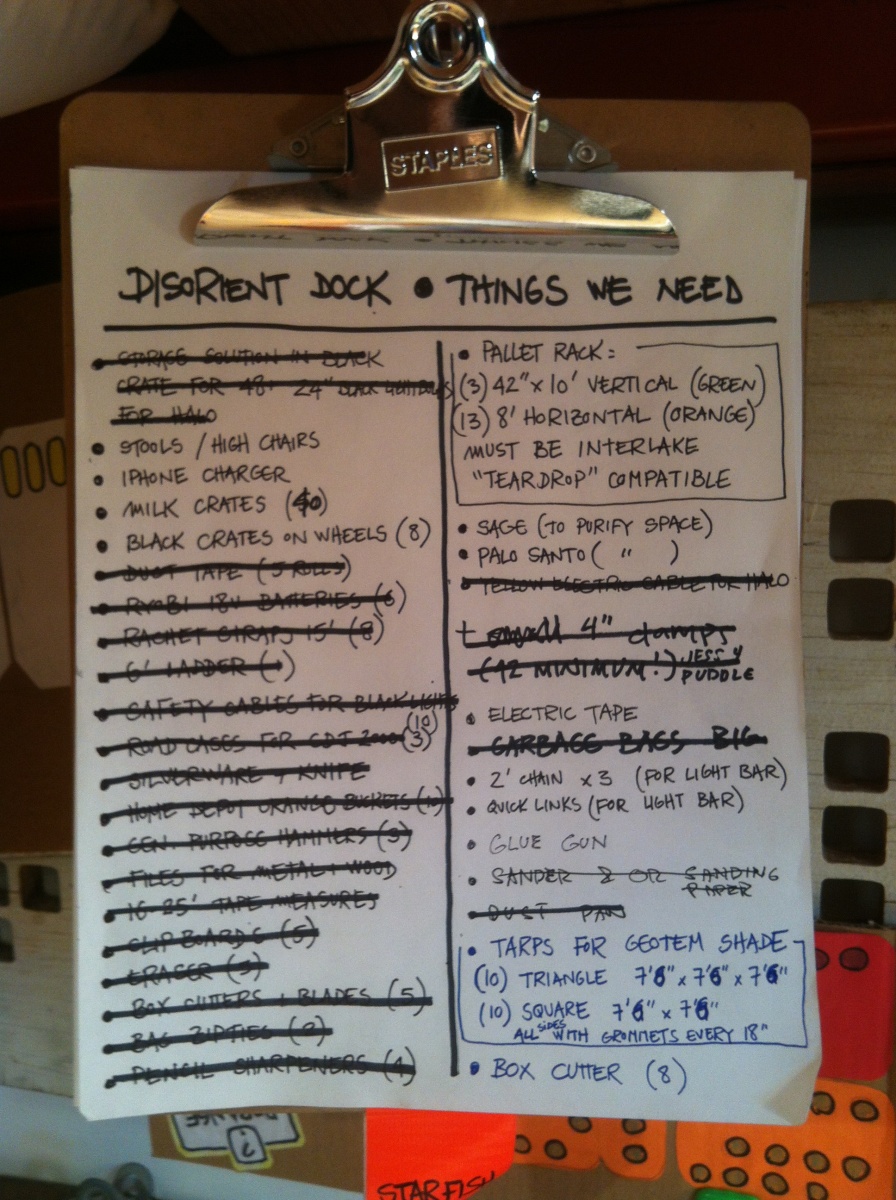 STAPLES
DISORIENT DOCK • THINGS WE NEED
• STORAGE SOLUTION IN BLACK
CRATE FOR 48+ 24" BLACK LIGHT
FOR HALO
• STOOLS / HIGH CHAIRS
• IPHONE CHARGER
• MILK CRATES (40)
• BLACK CRATES ON WHEELS (8)
• DUCT TAPE (5 ROLLS)
• RYOBI 18V BATTERIES (6)
• RACHET STRAPS 15' (8)
• 6' LADDER (1)
• SAFETY CABLES FOR BLACK LIGHTS
(10)
• ROAD CASES FOR CDJ 2000 (3)
• SILVERWARE + KNIFE
• HOME DEPOT ORANGE BUCKETS
• GEN. PURPOSE HAMMERS (3)
• FILES FOR METAL + WOOD
• 16-25' TAPE MEASURES
• CLIPBOARDS (5)
• ERASER (3)
• BOX CUTTERS + BLADES (5)
• BAG ZIPTIES (2)
• PENCIL SHARPENERS (4)
• PALLET RACK:
(3) 42" x 10' VERTICAL (GREEN)
(13) 8' HORIZONTAL (ORANGE)
MUST BE INTERLAKE
"TEARDROP" COMPATIBLE
• SAGE (TO PURIFY SPACE)
• PALO SANTO ( " )
• YELLOW ELECTRIC CABLE FOR HALO
+ small 4" clamps
(42 MINIMUM!) JESS 4
PUDDLE
• ELECTRIC TAPE
• GARBAGE BAGS BIG
• 2' CHAIN x 3 (FOR LIGHT BAR)
• QUICK LINKS (FOR LIGHT BAR)
• GLUE GUN
• SANDER & OR SANDING
PAPER
• DUST PAN
• TARPS FOR GEOTEM SHADE
(10) TRIANGLE 7'6" x 7'6" x 7'6"
(10) SQUARE 7'6" x 7'6"
ALL SIDES WITH GROMMETS EVERY 18"
• BOX CUTTER (8)
STARFISH